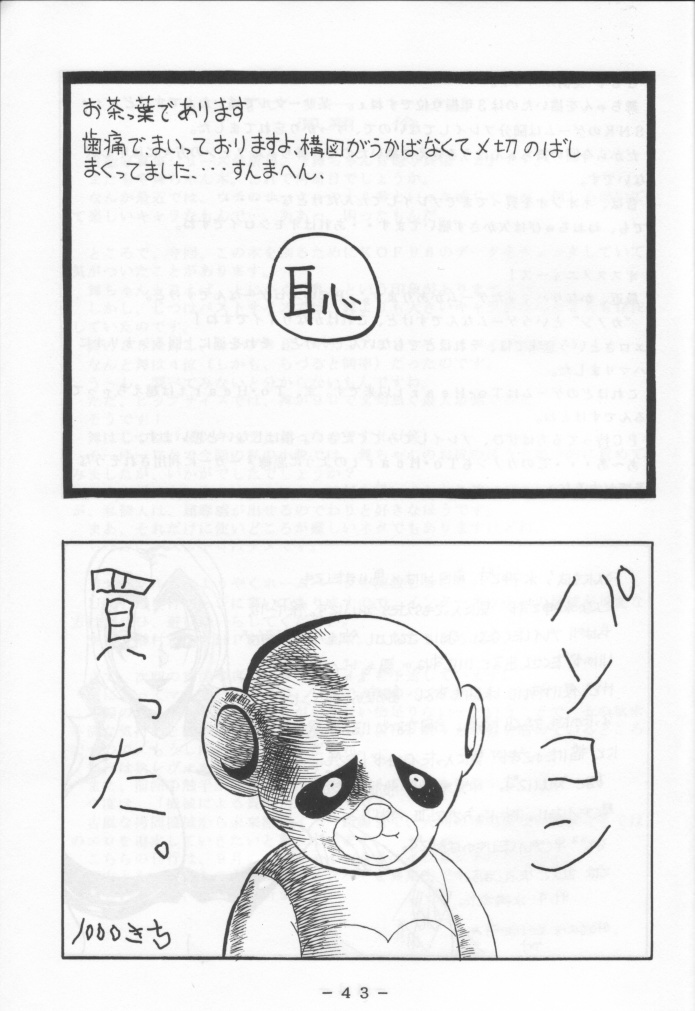 お茶っ葉であります
歯痛で、まいっておりますよ、構図がうかばなくて〆切のばし
まくってました....すんまへん.
恥
パソコン
買った。
1000きち
－43－